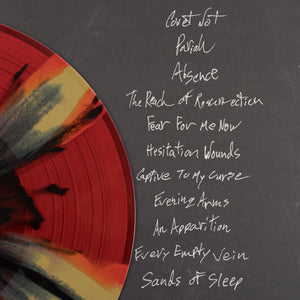 Covet Not
Pariah
Absence
The Reach of Resurrection
Fear For Me Now
Hesitation Wounds
Captive To My Curse
Evening Arms
An Apparition
Every Empty Vein
Sands of Sleep